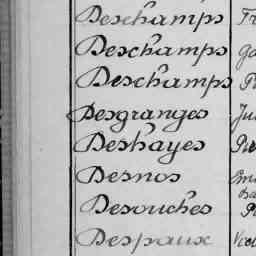 Deschamps
Deschamps
Deschamps
Desgranges
Deshayes
Desnos
Desouches
Despaux